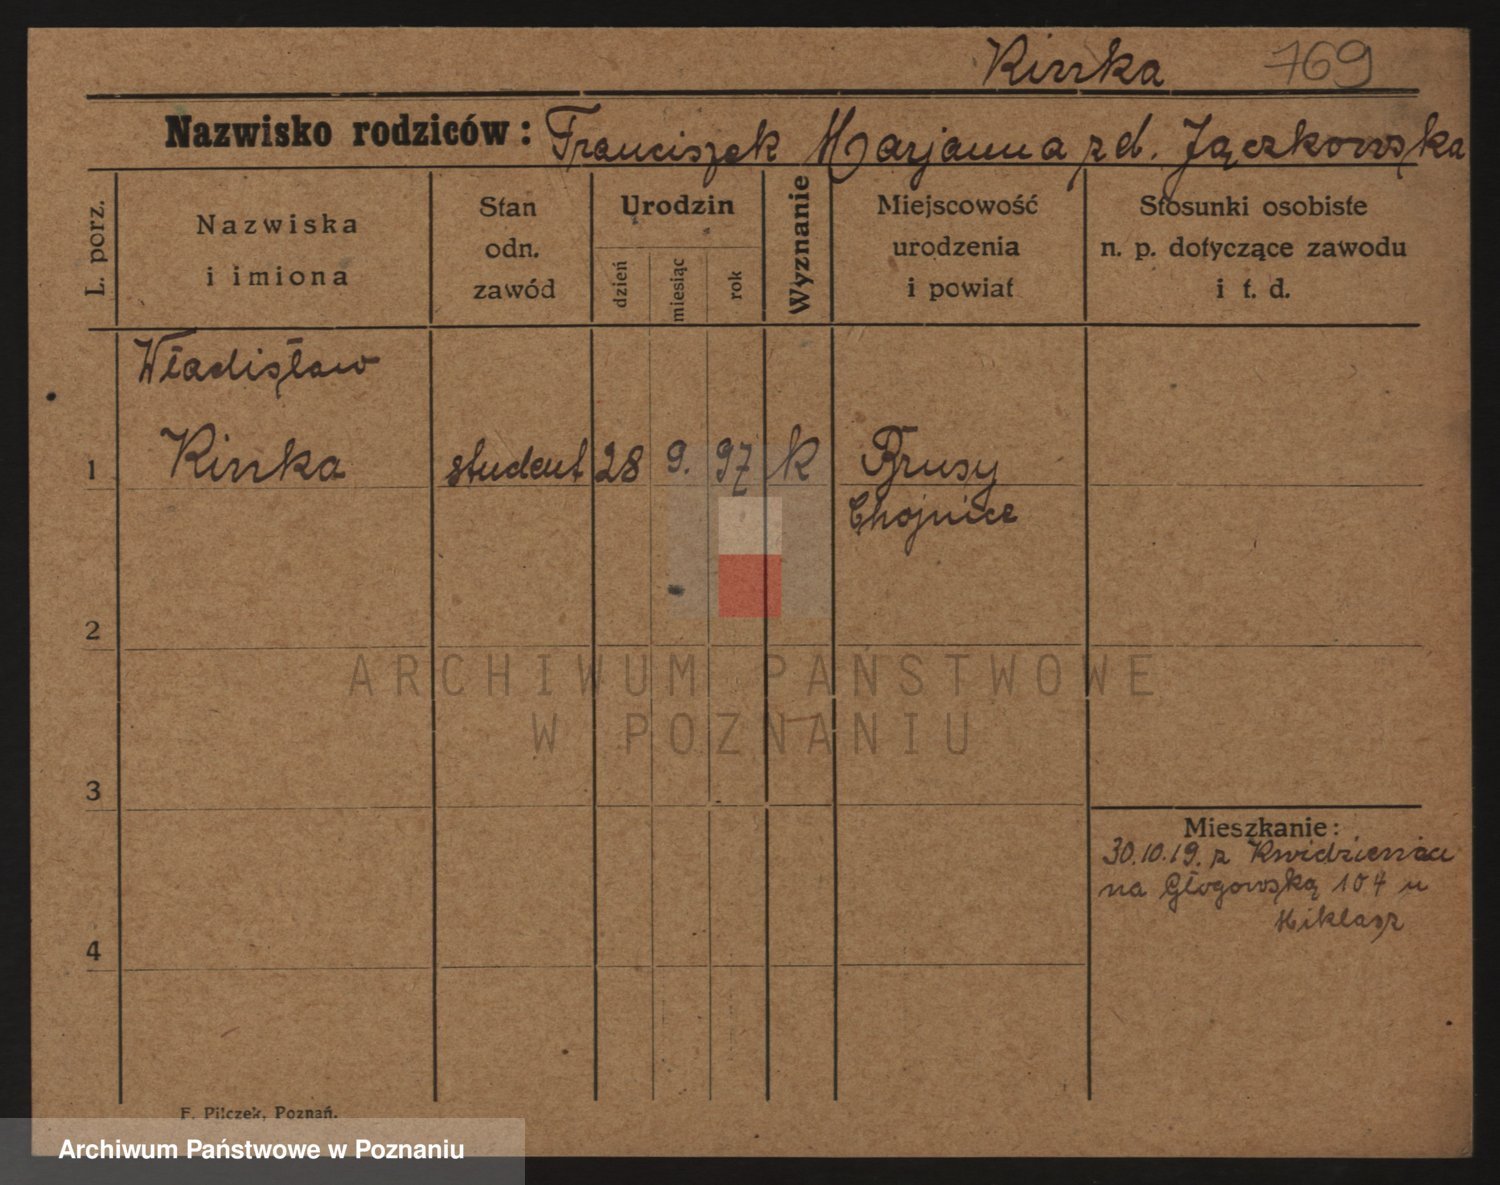 Kinka 769
Nazwisko rodziców: Franciszek Marjanna zd. Jączkowska
L. porz.
Nazwiska
i imiona
Stan
odn.
zawód
Urodzin
dzień
miesiąc
rok
Wyznanie
Miejscowość
urodzenia
i powiat
Stosunki osobiste
n. p. dotyczące zawodu
i t. d.
Władisław
1 Kinka student 28 9. 97 k Brusy
Chojnice
2
ARCHIWUM PAŃSTWOWE
W POZNANIU
3
Mieszkanie:
30.10.19. z
na Głogowską 104 u
Miklasz
4
F. Pilczek, Poznań.
Archiwum Państwowe w Poznaniu